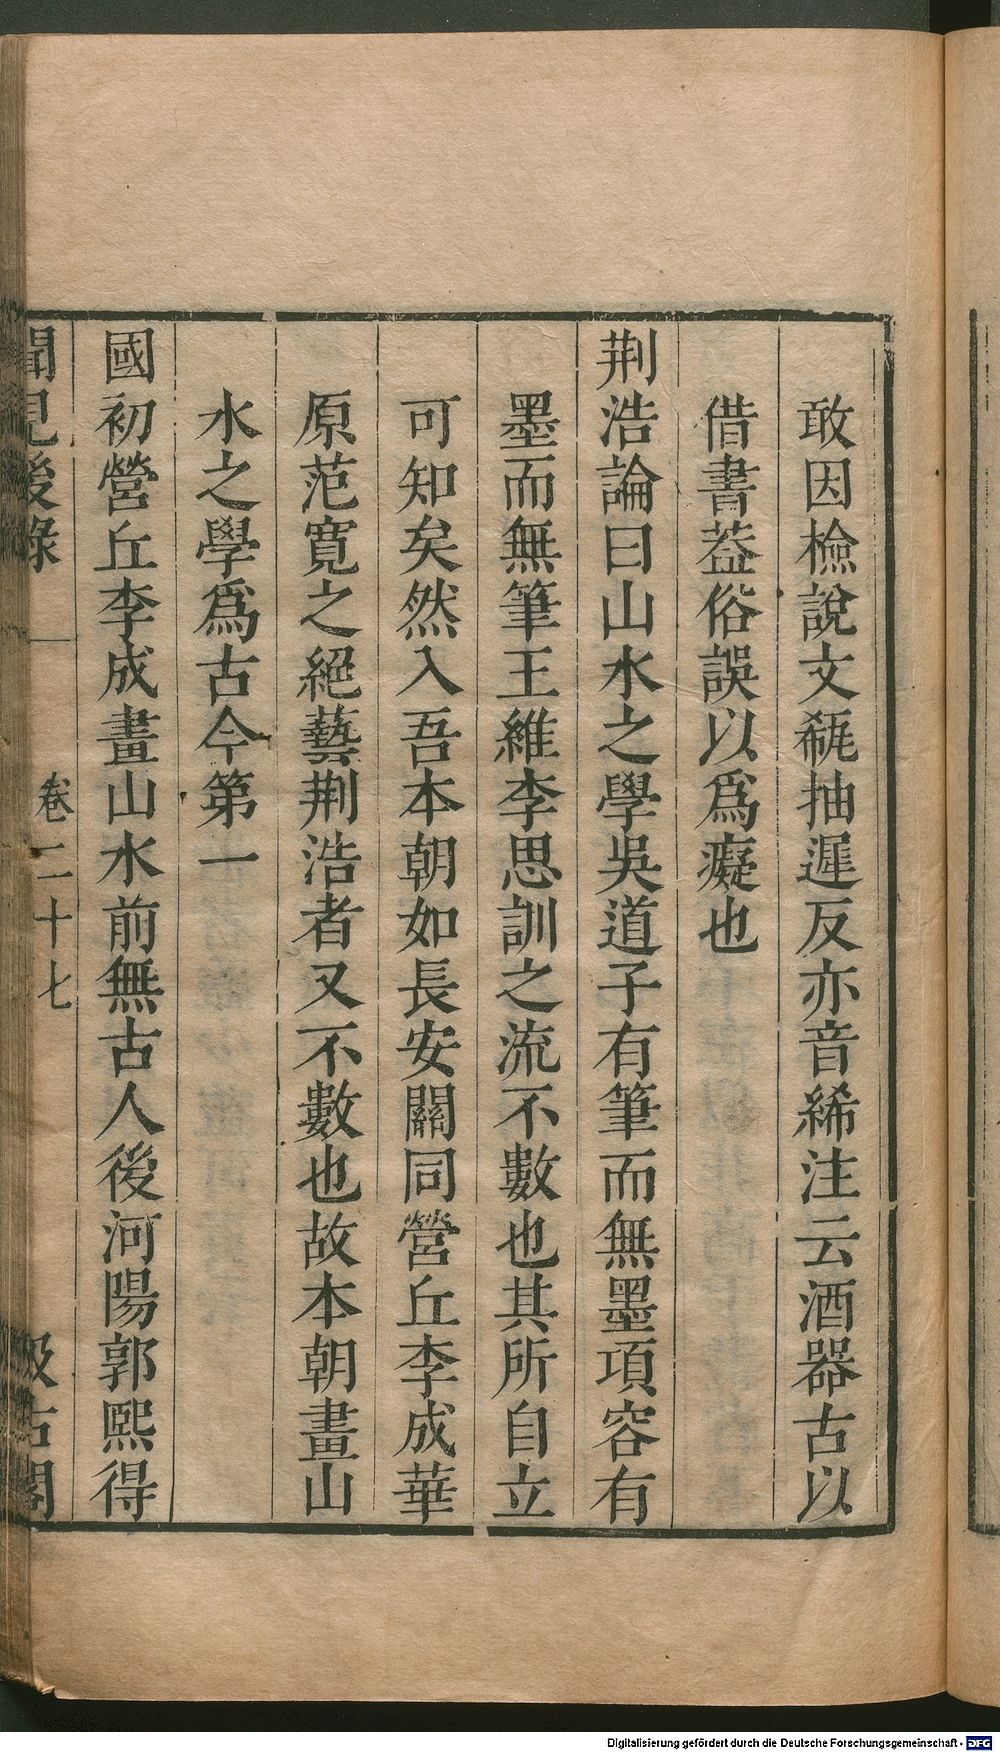 敢因檢說文瓻抽遲反亦音絺注云酒器古以
借書葢俗誤以爲癡也
荆浩論曰山水之學吳道子有筆而無墨項容有
墨而無筆王維李思訓之流不數也其所自立
可知矣然入吾本朝如長安關同營丘李成華
原范寬之絕藝荆浩者又不數也故本朝畫山
水之學爲古今第一
國初營丘李成畫山水前無古人後河陽郭熙得
聞見後錄 卷二十七 汲古閣
Digitalisierung gefördert durch die Deutsche Forschungsgemeinschaft - DFG